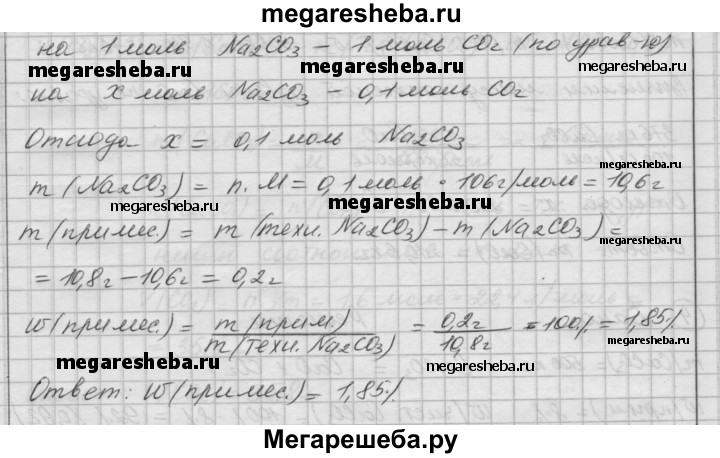 megaresheba.ru
на 1 моль Na2CO3 – 1 моль CO2 (по урав-ю)
megaresheba.ru megaresheba.ru megaresheba.ru
на x моль Na2CO3 – 0,1 моль CO2
Отсюда x = 0,1 моль Na2CO3
megaresheba.ru
m (Na2CO3) = n. M = 0,1 моль · 106 г/моль = 10,6 г
megaresheba.ru megaresheba.ru
m (примес.) = m (техн. Na2CO3) – m (Na2CO3) =
megaresheba.ru
= 10,8 г – 10,6 г = 0,2 г
w (примес.) = m (прим.) / m (техн. Na2CO3) = 0,2 г / 10,8 г · 100% = 1,85%
megaresheba.ru megaresheba.ru
Ответ: w (примес.) = 1,85%
megaresheba.ru
Мегарешеба.ру